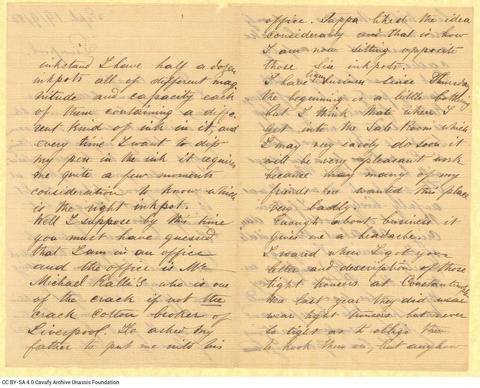 inkstand I have half a dozen
inkpots all of different mag
nitude and capacity each
of them containing a diffe
rent kind of ink in it, and
every time I want to dip
my pen in the ink it requires
me quite a few moments
consideration to know which
is the right inkpot.
Well I suppose by this time
you must have guessed
that I am in an office
and the office is Mr
Michael Ralli's who is one
of the crack if not the
crack cotton broker of
Liverpool. He asked my
father to put me into his
office. Pappa liked the idea
considerably and that is how
I am now sitting opposite
those six inkpots.
I have business since Thursday
the beginning is a little
but I think that when I
get into the Sale Room which
I may very easily do soon it
will be very pleasant work
because many many of my
friends wanted this place
very badly.
Enough about business it
gives me a headache.
I roared when I got your
letter and description of those
tight at
last year they did wear
wear tight but never
so tight as to oblige them
to hook them on, but anyhow
CC BY-SA 4.0 Cavafy Archive Onassis Foundation